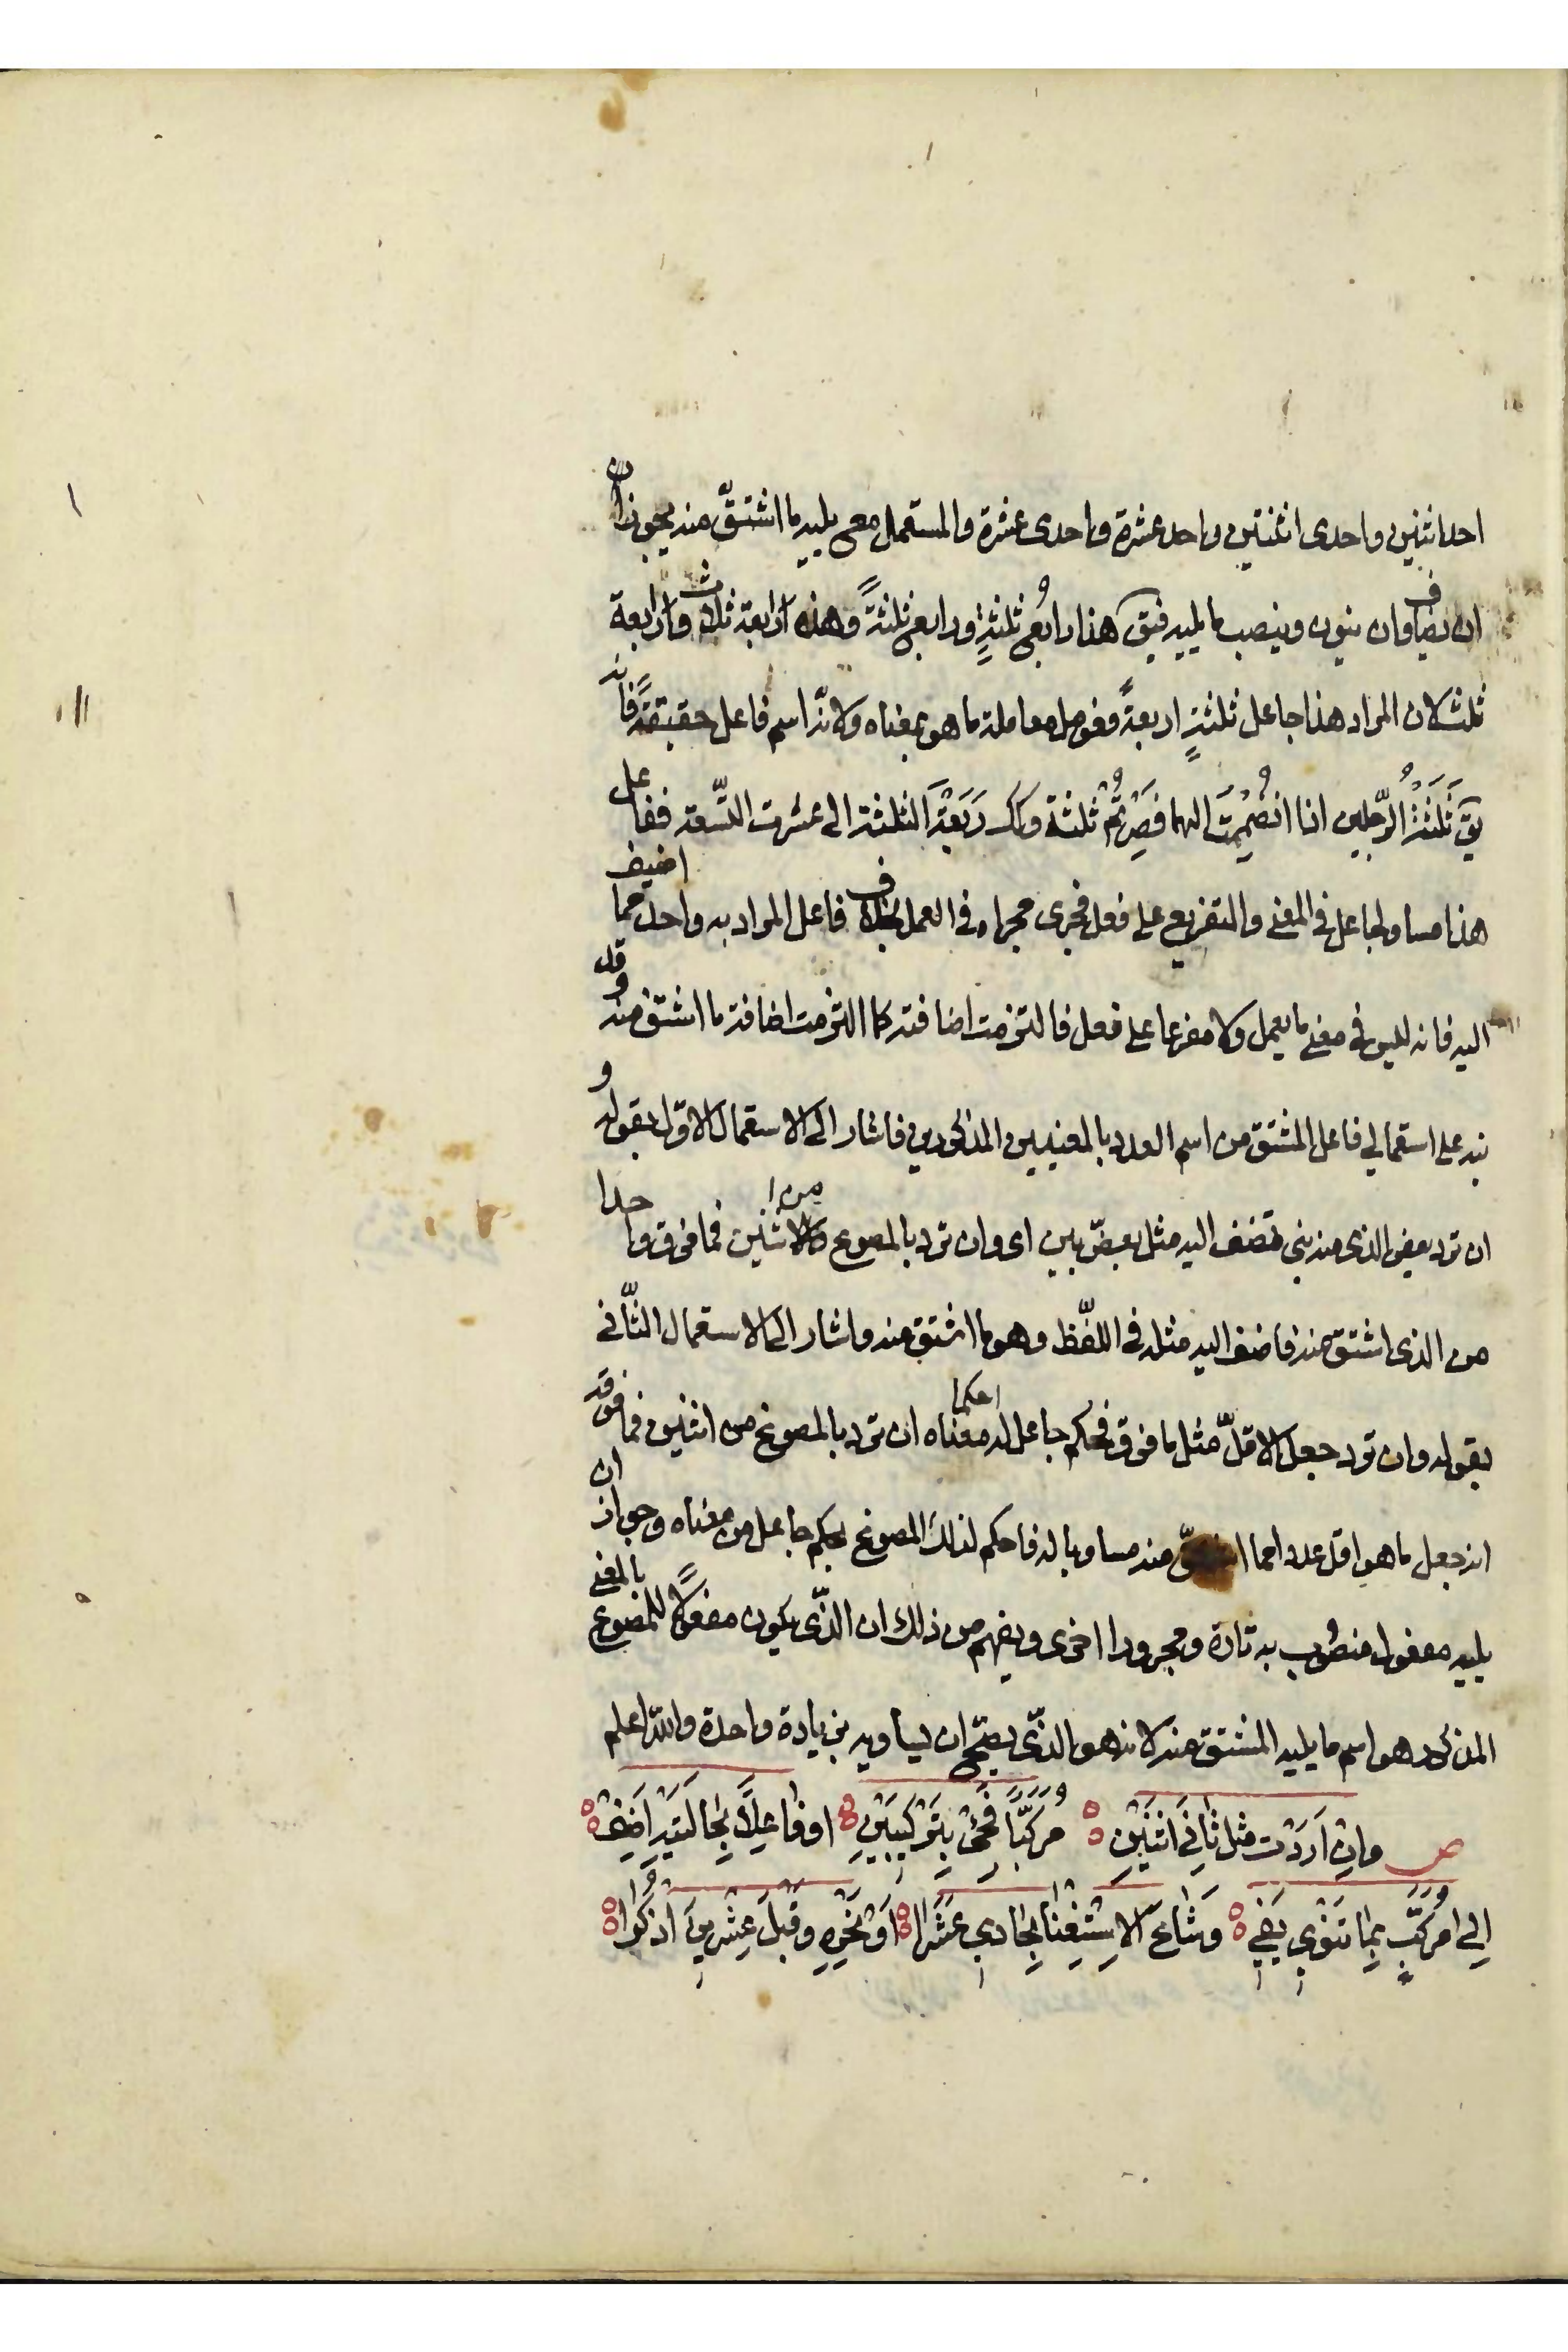 احد اثنين واحدى اثنتين واحد عشرة واحدى عشرة والمستعمل مع يليه ما اشتقّ منه يجوز ان
ان يضاف وان ينون وينصب ما يليه فيق هذا رابعُ ثلثةٍ ورابعٌ ثلثةً وهذه رابعة ثلاث ورابعة
ثلث لان المراد هذا جاعل ثلثةٍ اربعةً فعومل معاملة ما هو بمعناه ولانّه اسم فاعل حقيقةً فانه
يق ثَلَثْتُ الرّجلين اذا انضممتَ اليهما فصِرْتُمْ ثلثة وكك رَبَعْتَ الثلثة الى عشرت التّسعة ففاعل
هذا مساو لجاعل في المعنى والتفريع على فعل فجرى مجراه في العمل بخلاف فاعل المراد به واحد مما اضيف
اليه فانه ليس في معنى ما يعمل ولا مفرعا على فعل فالتزمت اضافته كما التزمت اضافة ما اشتق منه وقد
نبه على استعمالي فاعل المشتق من اسم العدد بالمعنيين المذكورين فاشار الى الاستعمال الاوّل بقوله و
ان ترد بعض الذى منه بنى تضف اليه مثل بعض بيّن اى وان ترد بالمصوغ من اثنين فما فوق واحدا
من الذى اشتق منه فاضف اليه مثله في اللفّظ وهو ما اشتق منه واشار الى الاستعمال الثّانى
بقوله وان ترد جعل الاقلّ مثل ما فوق فحكم جاعل له احكما معناه ان ترد بالمصوغ من اثنين فما فوقه
انه جعل ما هو اقل عددا مما اشتقّ منه مساويا له فاحكم لذلك المصوغ بحكم جاعل من معناه وجواز ان
يليه مفعول منصوب به تارة ومجرورا اخرى ويفهم من ذلك ان الذّى يكون مفعولاً للمصوغ بالمعنى
المذكور هو اسم ما يليه المشتق منه لانه هو الذّى يصحّ ان يساويه بزيادة واحدة واللّه اعلم
ص وانْ اَرَدْتَ مثل ثانِيَ اثنَيْنِ مُرَكَّبًا فَجِئْ بِتَرْكِيبَيْنِ او فاعِلاً بِحالَتَيْهِ اَضِفْ
اِلى مُرَكَّبٍ بِما تَنْوِي يَفِي وَشاعَ الاِسْتِغْنا بِحادِي عَشَرا اَوْ نَحْوِهِ وَقَبْلَ عِشْرِينَ اذْكُرا